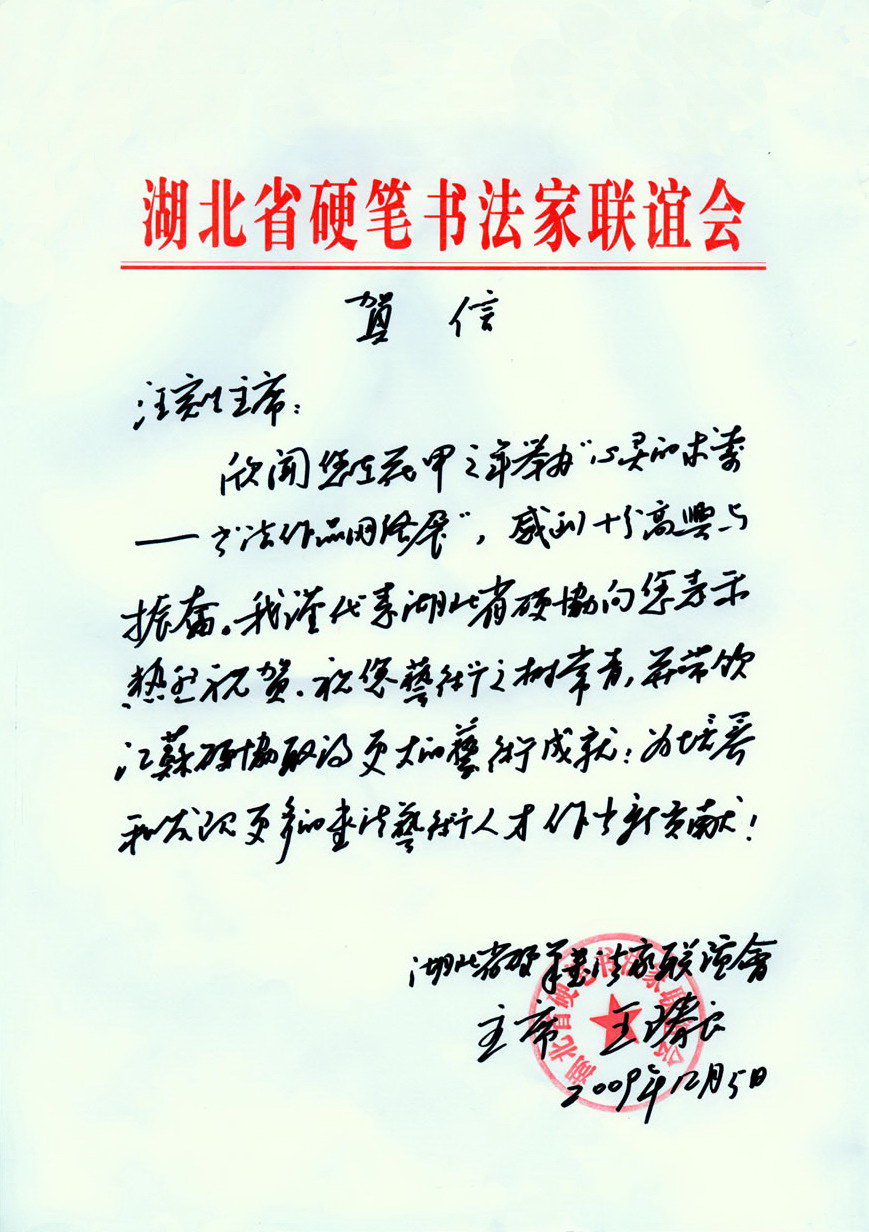 湖北省硬笔书法家联谊会
贺 信
汪寅生主席：
欣闻您在花甲之年举办“心灵的求索
——书法作品网络展”，感到十分高興与
振奋。我谨代表湖北省硬协向您表示
热烈祝贺。祝您藝術之树常青，并带领
江蘇硬協取得更大的藝術成就；为培养
和发现更多的书法藝術人才作出新贡献！
湖北省硬筆書法家联谊會
主席 王
2009年12月5日
湖北省硬笔书法家联谊会